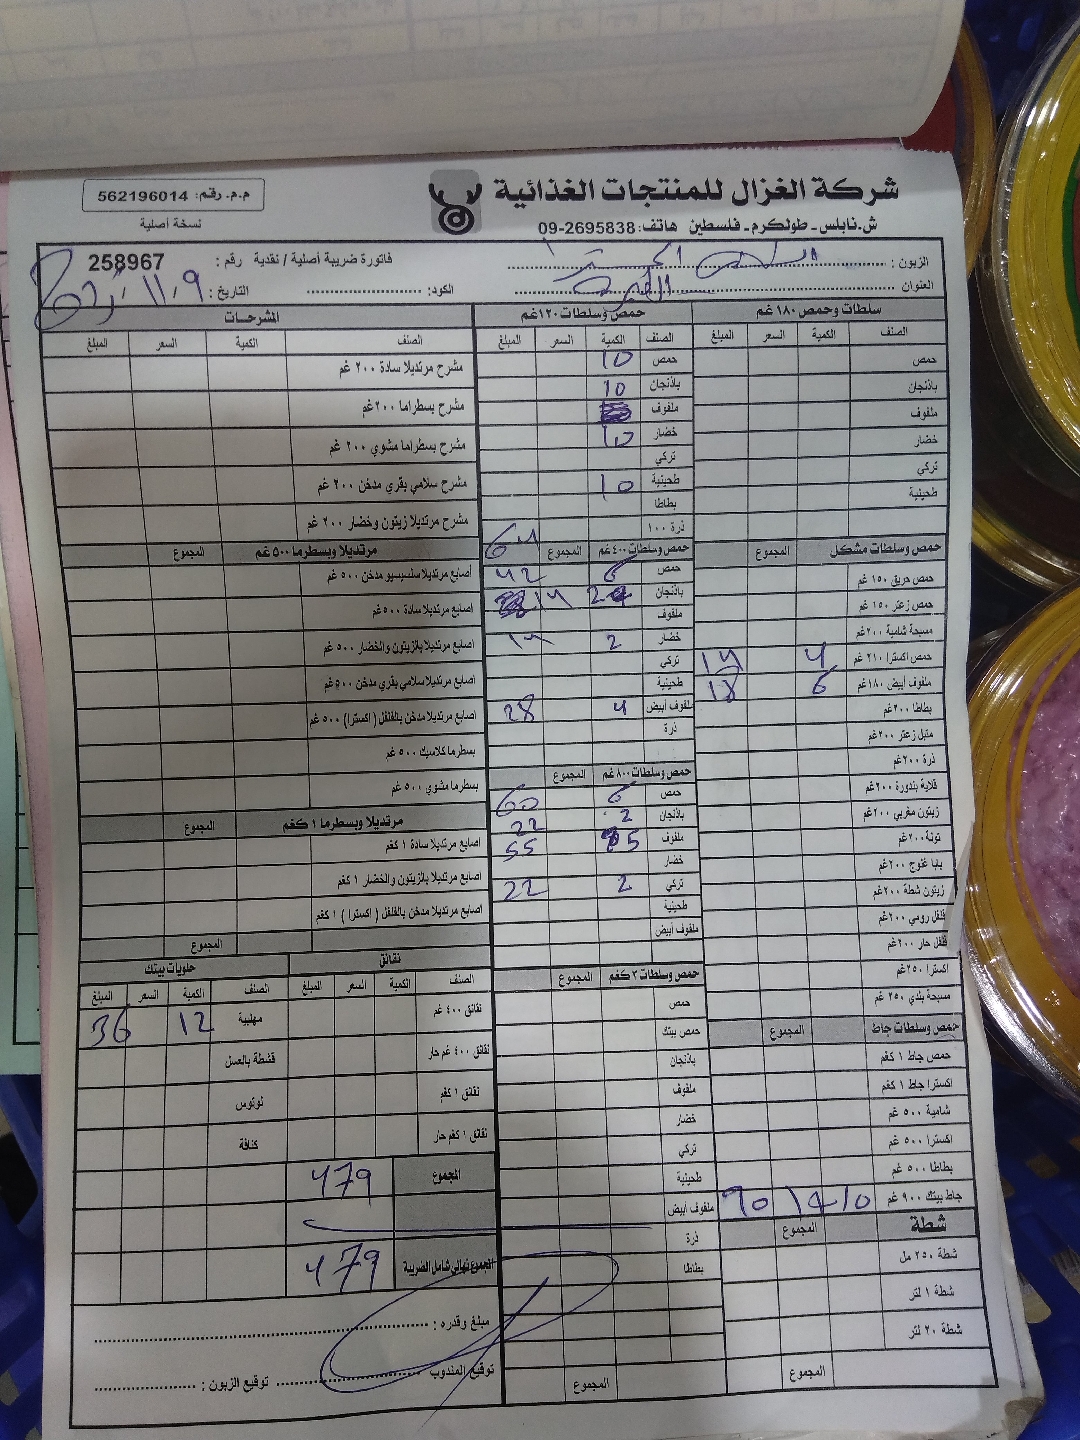 شركة الغزال للمنتجات الغذائية
م.م. رقم: 562196014
ش.نابلس ـ طولكرم ـ فلسطين هاتف: 09-2695838
نسخة أصلية
الزبون :
فاتورة ضريبة أصلية / نقدية رقم : 258967
العنوان
الكود:
التاريخ : 9 . 11 .
سلطات وحمص ١٨٠ غم
الصنف الكمية السعر المبلغ
حمص
باذنجان
ملفوف
خضار
تركي
طحينية
حمص وسلطات مشكل المجموع
حمص حريق ١٥٠ غم
حمص زعتر ١٥٠ غم
مسبحة شامية ٢٠٠غم
حمص اكسترا ٢١٠ غم 4 14
ملفوف أبيض ١٨٠غم 6 18
بطاطا ٢٠٠غم
متبل زعتر ٢٠٠غم
ذرة ٢٠٠غم
قلاية بندورة ٢٠٠غم
زيتون مغربي ٢٠٠غم
تونة ٢٠٠غم
بابا غنوج ٢٠٠غم
زيتون شطة ٢٠٠غم
فلفل رومي ٢٠٠غم
فلفل حار ٢٠٠غم
اكسترا ٢٥٠غم
مسبحة بلدي ٢٥٠ غم
حمص وسلطات جاط المجموع
حمص جاط ١ كغم
اكسترا جاط ١ كغم
شامية ٥٠٠ غم
اكسترا ٥٠٠ غم
بطاطا ٥٠٠ غم
جاط بيتك ٩٠٠ غم 10 9 90
شطة المجموع
شطة ٢٥٠ مل
شطة ١ لتر
شطة ٢٠ لتر
المجموع
حمص وسلطات ١٢٠غم
الصنف الكمية السعر المبلغ
حمص 10
باذنجان 10
ملفوف
خضار 10
تركي
طحينية 10
بطاطا
ذرة ١٠٠ 64
حمص وسلطات ٤٠٠غم المجموع
حمص 6 42
باذنجان 2 14
ملفوف
خضار 2 14
تركي
طحينية
ملفوف أبيض 4 28
ذرة
حمص وسلطات ٨٠٠ غم المجموع
حمص 6 60
باذنجان 2 22
ملفوف 5 55
خضار
تركي 2 22
طحينية
ملفوف أبيض
حمص وسلطات ٣ كغم المجموع
حمص
حمص بيتك
باذنجان
ملفوف
خضار
تركي
طحينية
ملفوف أبيض
ذرة
بطاطا
المجموع
المشرحات
الصنف الكمية السعر المبلغ
مشرح مرتديلا سادة ٢٠٠ غم
مشرح بسطراما ٢٠٠غم
مشرح بسطراما مشوي ٢٠٠ غم
مشرح سلامي بقري مدخن ٢٠٠ غم
مشرح مرتديلا زيتون وخضار ٢٠٠ غم
مرتديلا وبسطرما ٥٠٠ غم المجموع
أصابع مرتديلا سلسيسيو مدخن ٥٠٠ غم
أصابع مرتديلا سادة ٥٠٠غم
أصابع مرتديلا بالزيتون والخضار ٥٠٠ غم
أصابع مرتديلا سلامي بقري مدخن ٥٠٠غم
أصابع مرتديلا مدخن بالفلفل ( اكسترا ) ٥٠٠ غم
بسطرما كلاسيك ٥٠٠ غم
بسطرما مشوي ٥٠٠ غم
مرتديلا وبسطرما ١ كغم المجموع
أصابع مرتديلا سادة ١ كغم
أصابع مرتديلا بالزيتون والخضار ١ كغم
أصابع مرتديلا مدخن بالفلفل ( اكسترا ) ١ كغم
المجموع
نقانق
الصنف الكمية السعر المبلغ
نقانق ٤٠٠ غم
نقانق ٤٠٠ غم حار
نقانق ١ كغم
نقانق ١ كغم حار
حلويات بيتك
الصنف الكمية السعر المبلغ
مهلبية 12 36
قشطة بالعسل
لوتوس
كنافة
المجموع 479
المجموع نهائي شامل الضريبة 479
مبلغ وقدره :
توقيع المندوب
توقيع الزبون :